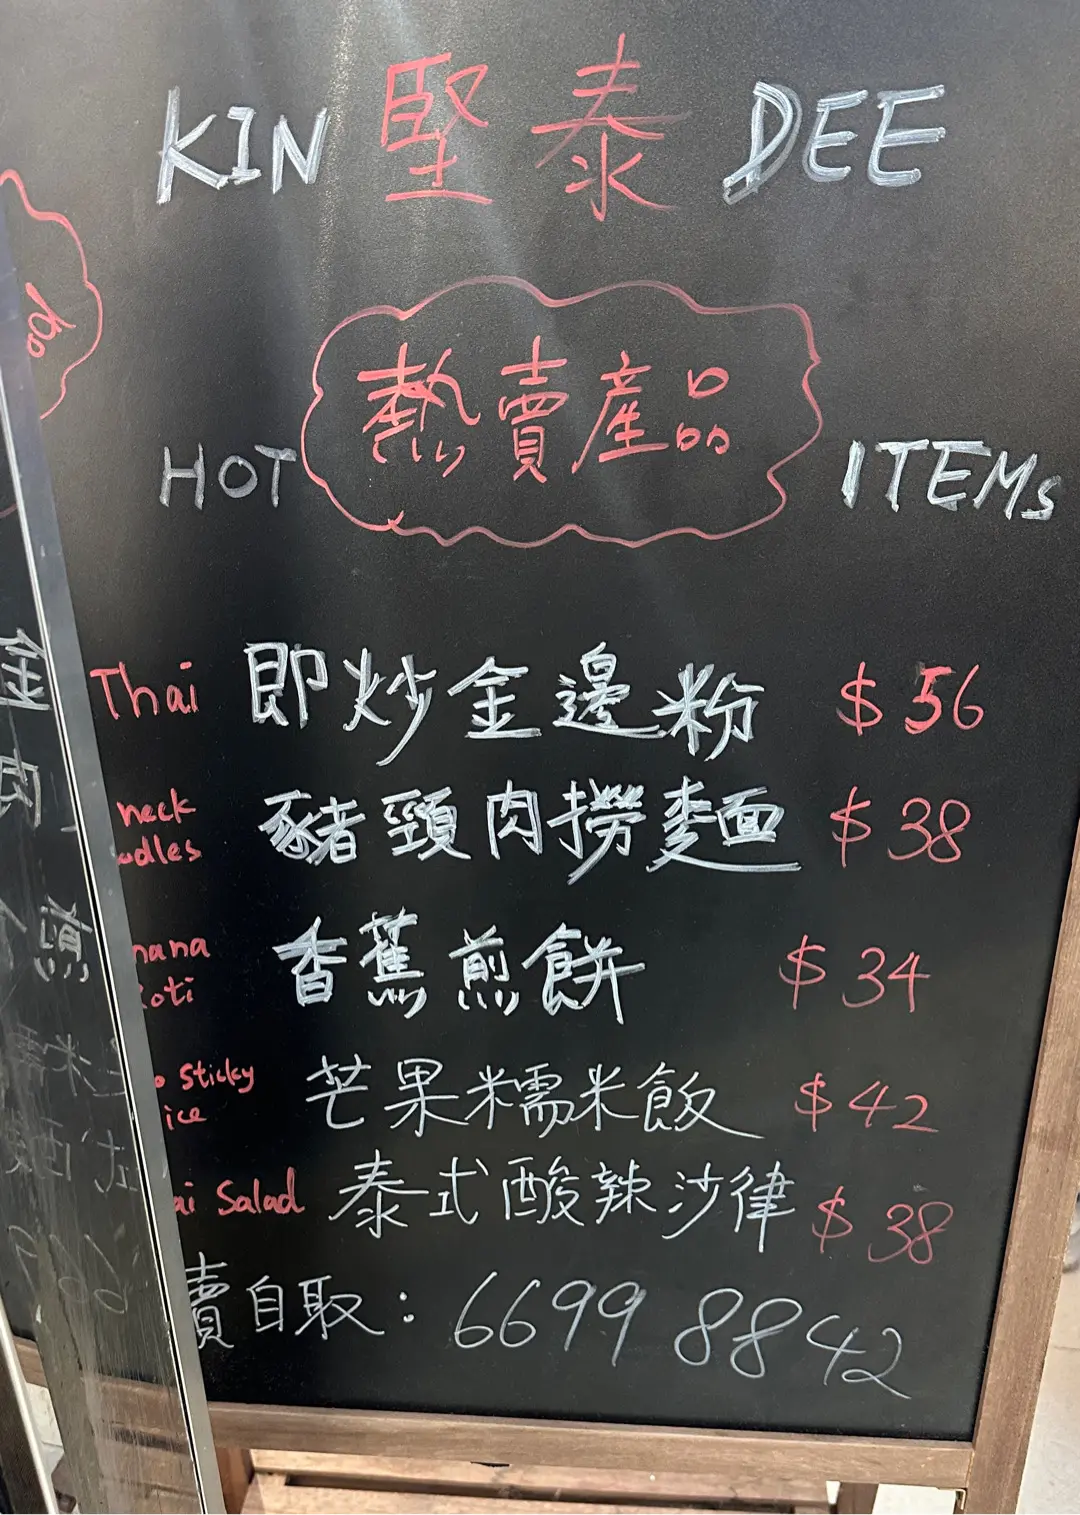 KIN 堅泰 DEE
HOT 熱賣產品 ITEMs
Thai 即炒金邊粉 $56
neck
odles 豬頸肉撈麵 $38
nana
oti 香蕉煎餅 $34
o sticky
ice 芒果糯米飯 $42
ai Salad 泰式酸辣沙律 $38
賣自取：6699 8842